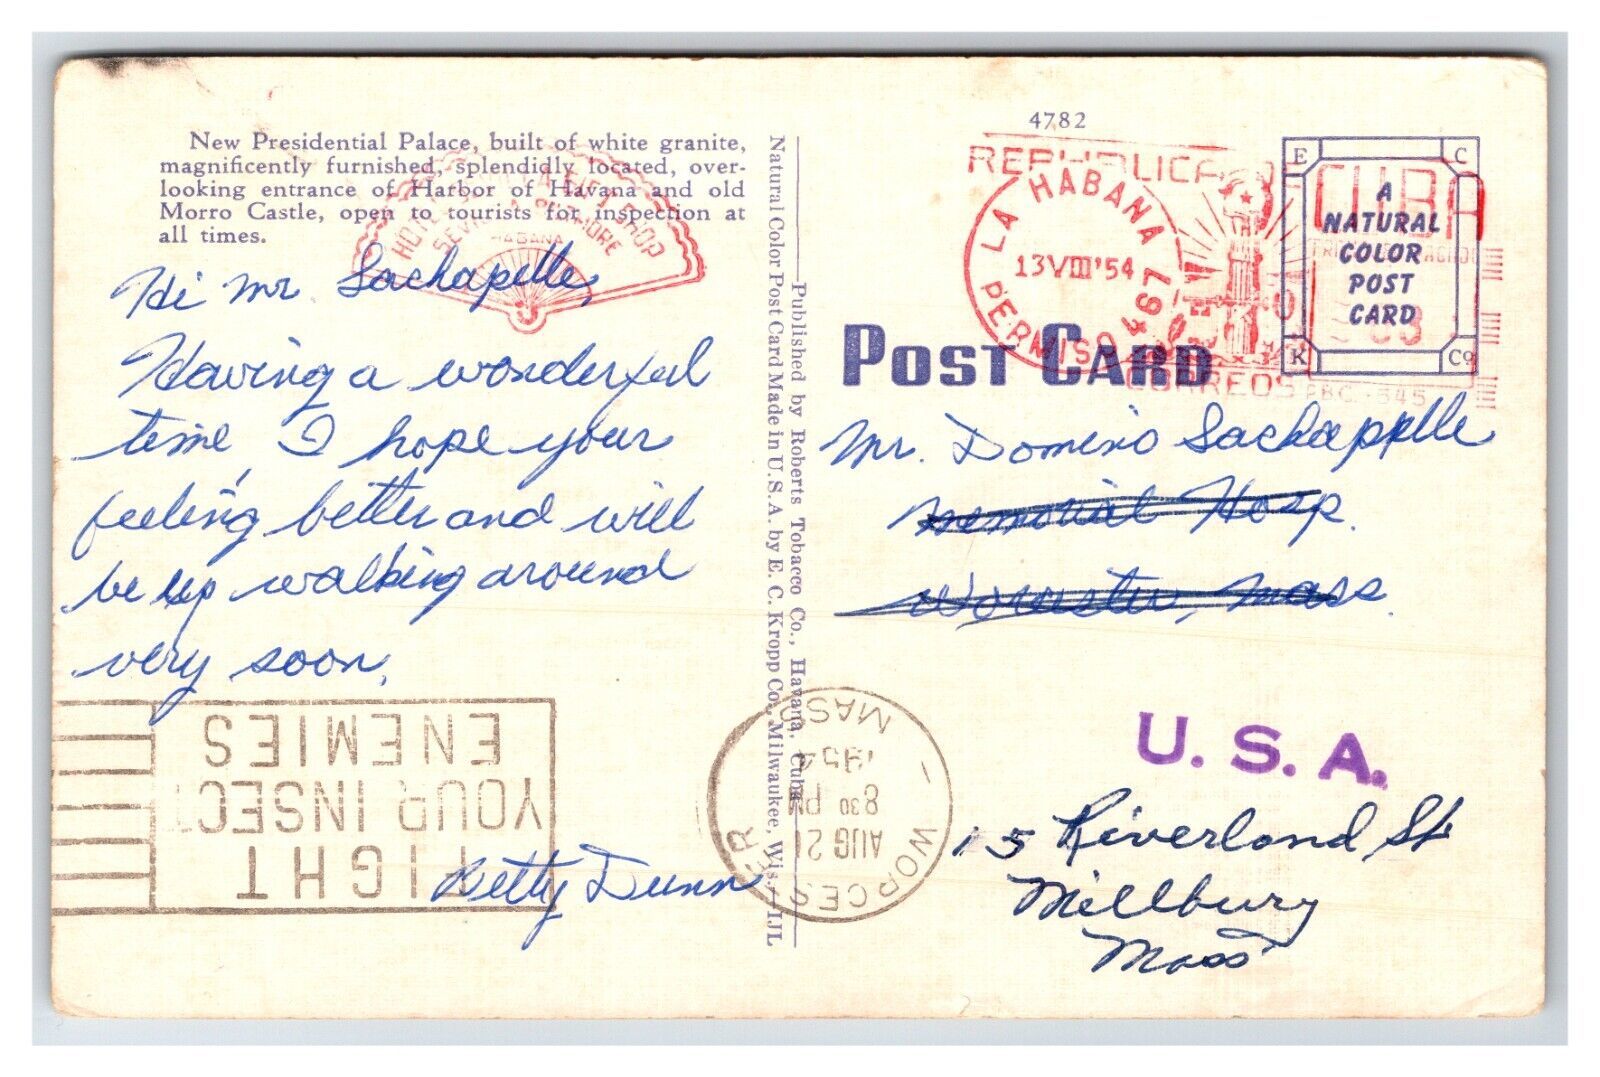 New Presidential Palace, built of white granite,
magnificently furnished, splendidly located, over-
looking entrance of Harbor of Havana and old
Morro Castle, open to tourists for inspection at
all times.
HABANA
Hi Mr. Lachapelle,
Having a wonderful
time, I hope your
feeling better and will
be up walking around
very soon.
Betty Dunn
FIGHT
YOUR INSECT
ENEMIES
WORCESTER
AUG 21
8 30 PM
1954
MASS
Published by Roberts Tobacco Co., Havana, Cuba
Natural Color Post Card Made in U. S. A. by E. C. Kropp Co., Milwaukee, Wis.—IJL
4782
REPUBLICA DE CUBA
LA HABANA
13 VIII '54
PERMISO 467
CORREOS
E C
A
NATURAL
COLOR
POST
CARD
K Co
POST CARD
Mr. Domino Lachappelle
Memorial Hosp.
Worcester, Mass.
U.S.A.
15 Riverland St
Millbury
Mass